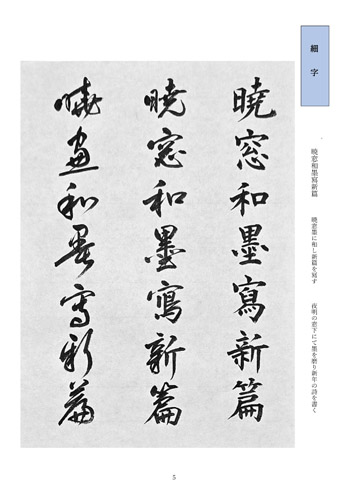 細字
暁窓和墨寫新篇
暁窓墨に和し新篇を写す
夜明の窓下にて墨を磨り新年の詩を書く
暁窓和墨寫新篇
暁窓和墨寫新篇
暁窓和墨寫新篇
5